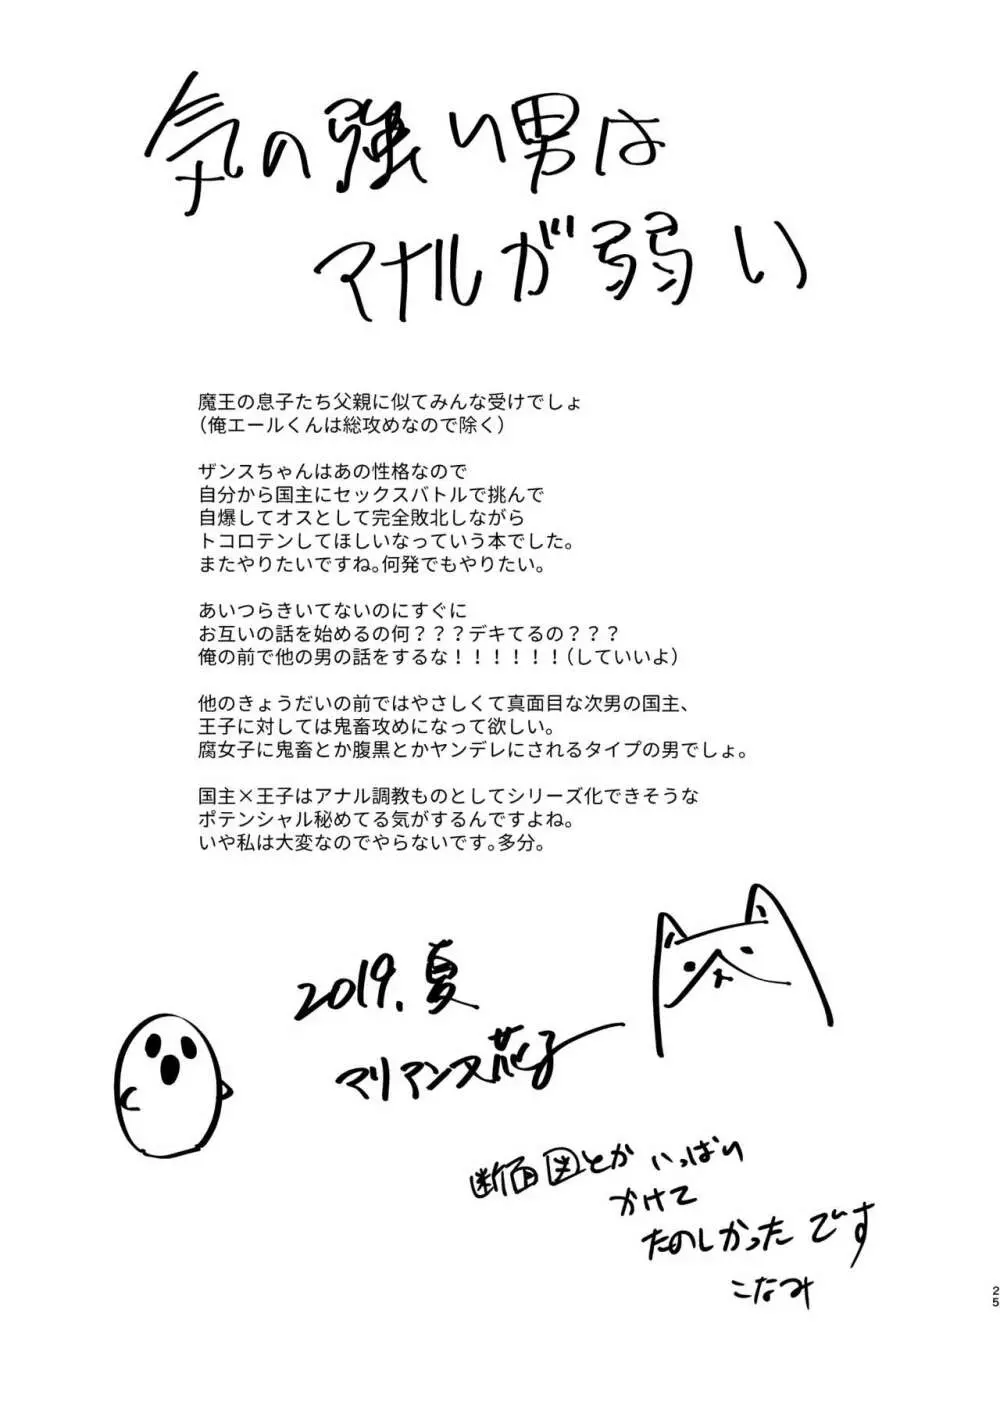 気の強い男は
アナルが弱い
魔王の息子たち父親に似てみんな受けでしょ
（俺エールくんは総攻めなので除く）
ザンスちゃんはあの性格なので
自分から国主にセックスバトルで挑んで
自爆してオスとして完全敗北しながら
トコロテンしてほしいなっていう本でした。
またやりたいですね。何発でもやりたい。
あいつらきいてないのにすぐに
お互いの話を始めるの何？？？デキてるの？？？
俺の前で他の男の話をするな！！！！！！（していいよ）
他のきょうだいの前ではやさしくて真面目な次男の国主、
王子に対しては鬼畜攻めになって欲しい。
腐女子に鬼畜とか腹黒とかヤンデレにされるタイプの男でしょ。
国主×王子はアナル調教ものとしてシリーズ化できそうな
ポテンシャル秘めてる気がするんですよね。
いや私は大変なのでやらないです。多分。
2019.夏
マリアンヌ花子
断面図とかいっぱい
かけて
たのしかったです
こなつみ
25